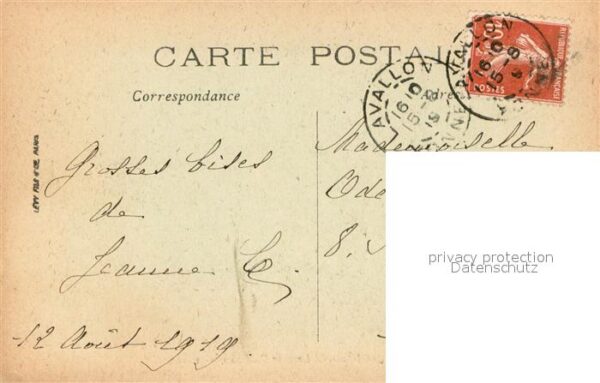 CARTE POSTAL
Correspondance
Adre
AVALLON
16 10
15-8
19
YONNE
AVALLON
16 10
15-8
RÉPUBLIQUE FRANÇAISE
POSTES
LÉVY FILS & CIE PARIS
Grosses bises
de
Jeanne C.
12 Août 1919
Mademoiselle
Ode
8.
privacy protection
Datenschutz